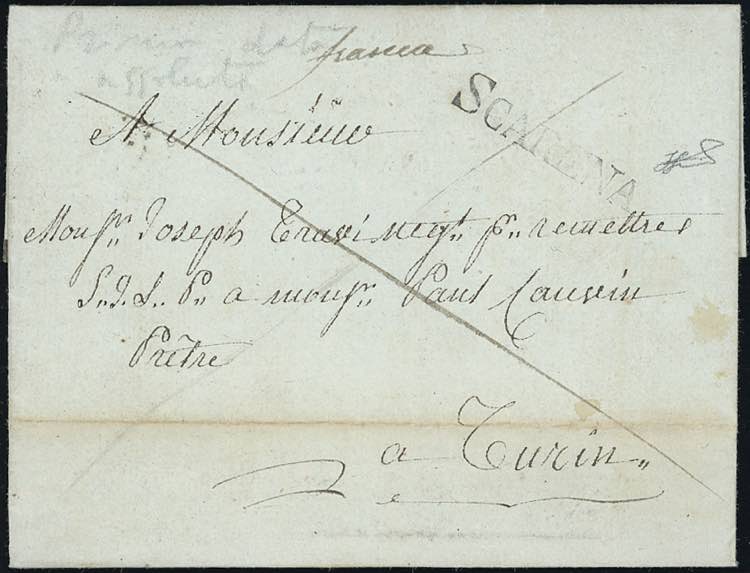 Prima data
assoluta
franca
SCARENA
A Monsieur
Monsr. Joseph Travi negt. pr. remettre
S. J. L. P. a monsr. Paul Cauvin
Prêtre
a Turin